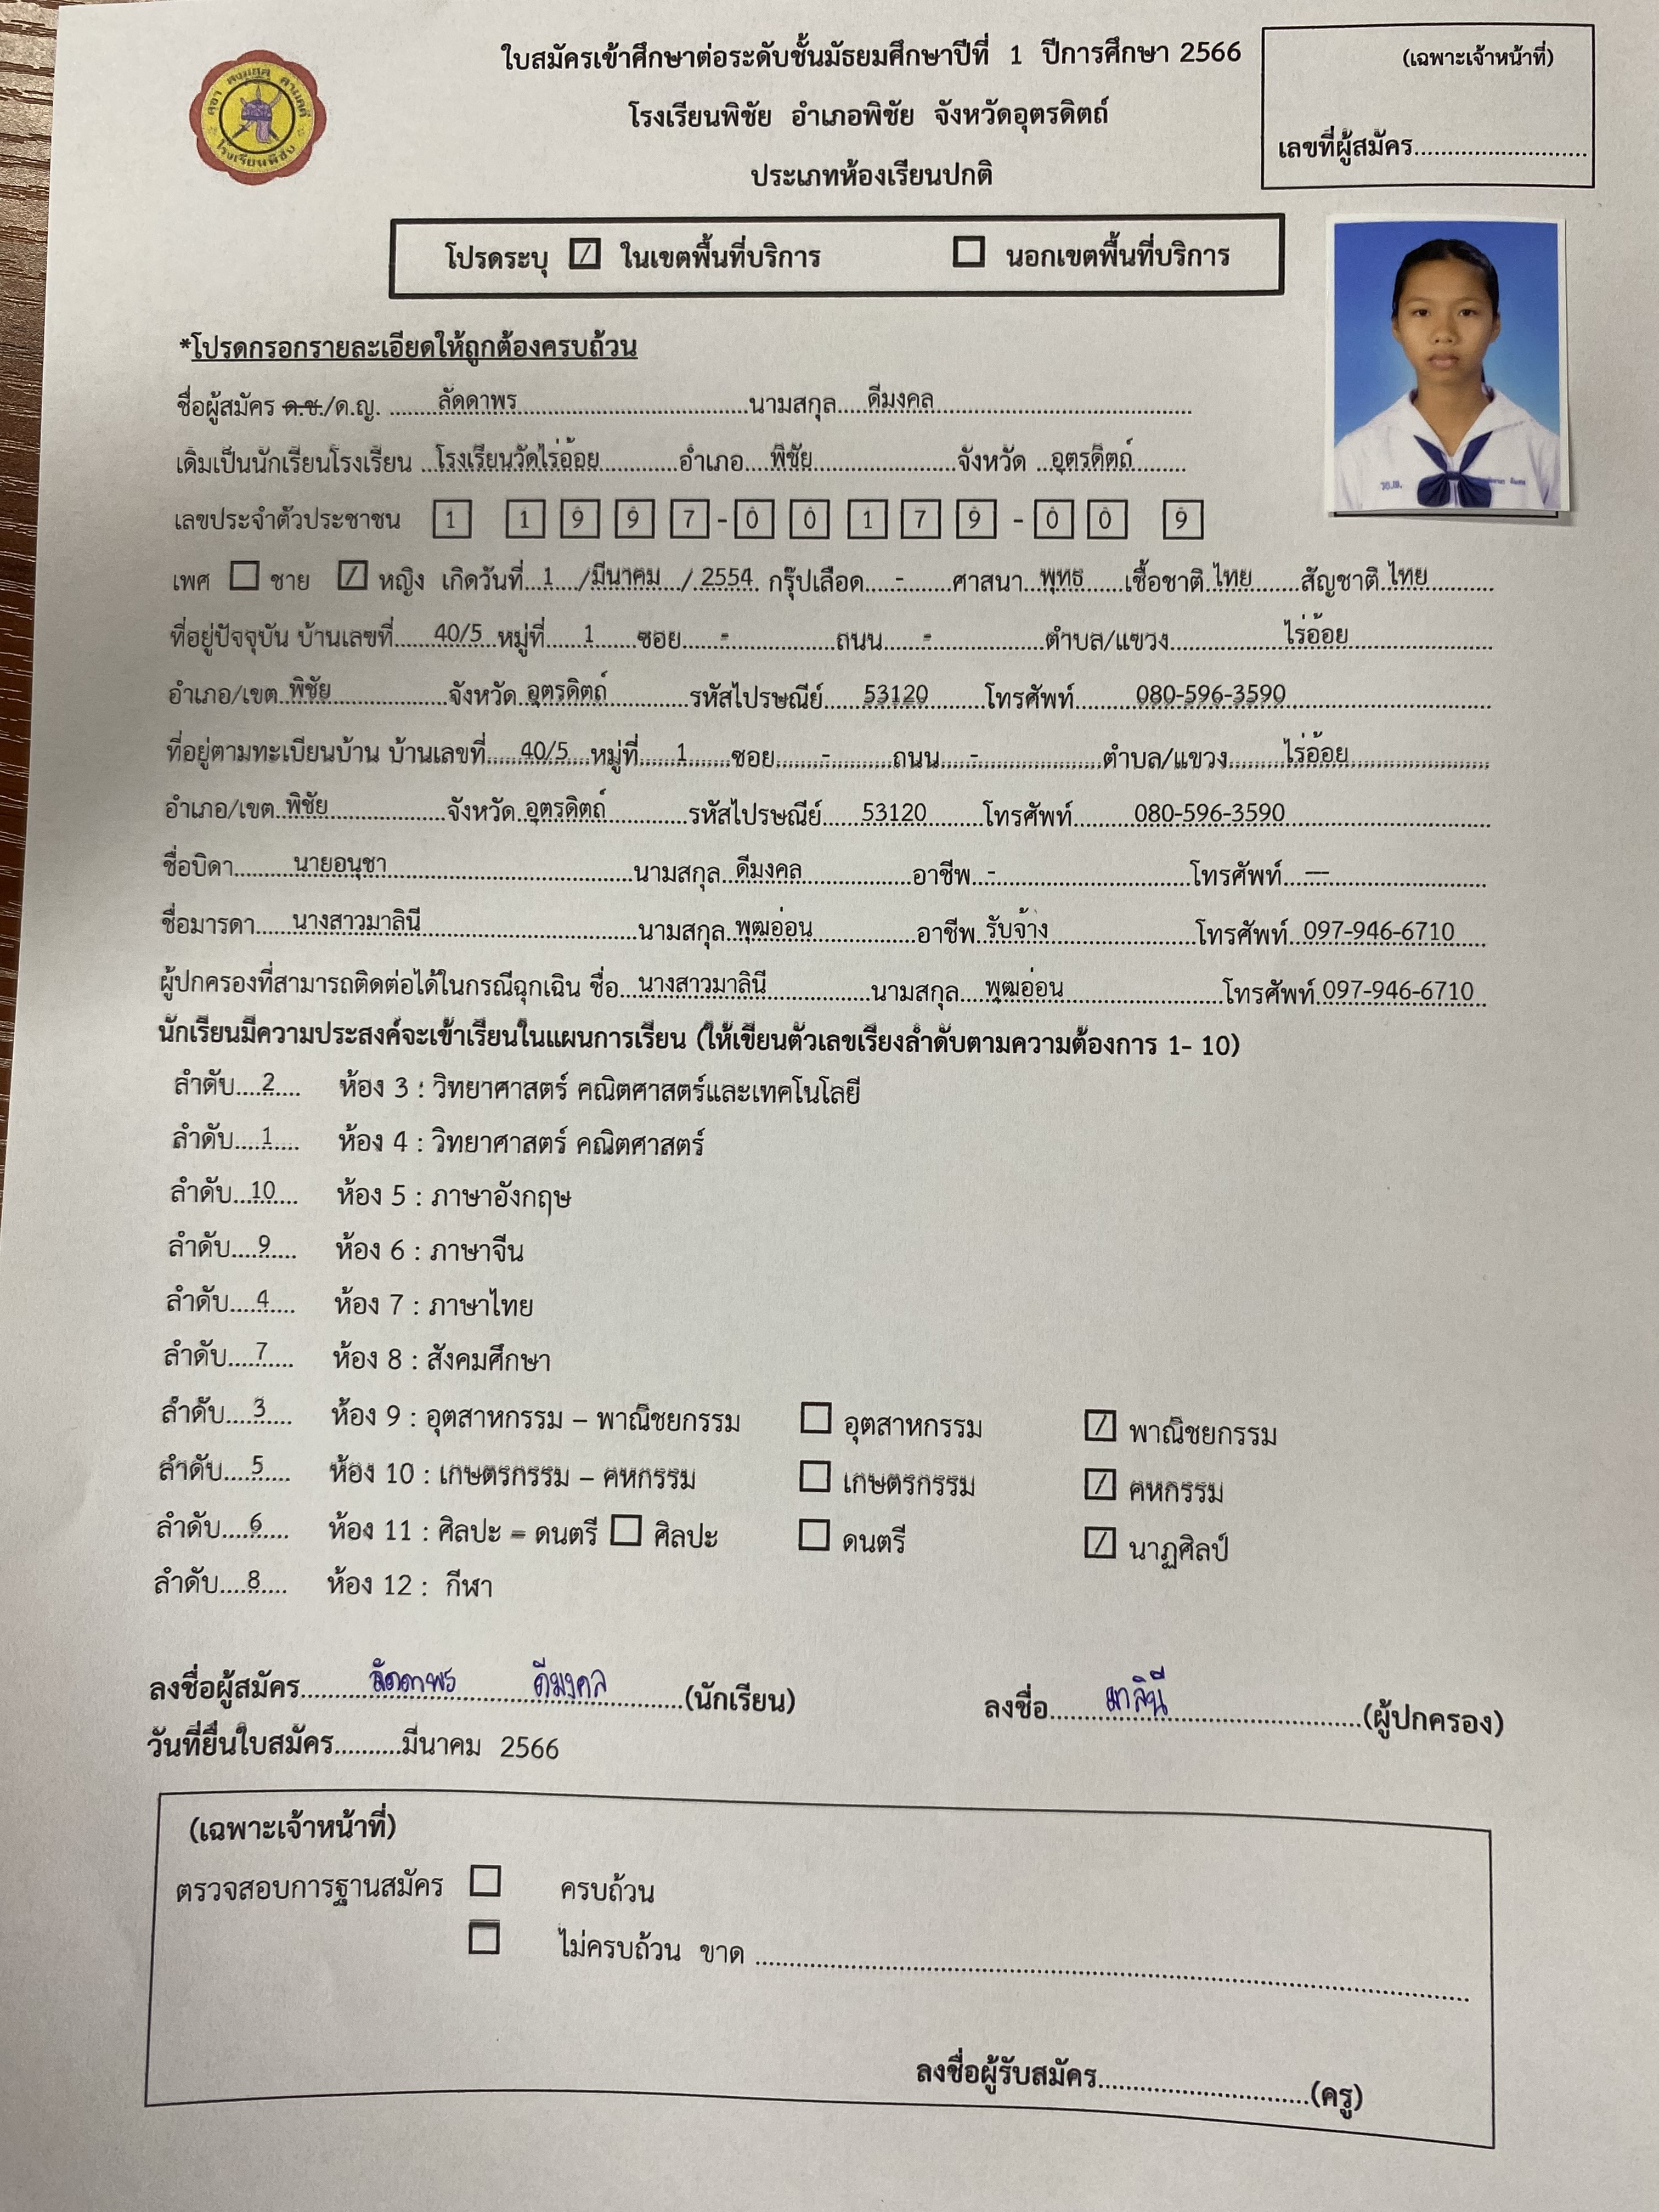 ใบสมัครเข้าศึกษาต่อระดับชั้นมัธยมศึกษาปีที่ 1 ปีการศึกษา 2566
(เฉพาะเจ้าหน้าที่)
โรงเรียนพิชัย อำเภอพิชัย จังหวัดอุตรดิตถ์
เลขที่ผู้สมัคร..........................
ประเภทห้องเรียนปกติ
โรงเรียนพิชัย
โปรดระบุ ☑ ในเขตพื้นที่บริการ ☐ นอกเขตพื้นที่บริการ
*โปรดกรอกรายละเอียดให้ถูกต้องครบถ้วน
ชื่อผู้สมัคร ด.ช./ด.ญ. ลัดดาพร นามสกุล ดีมงคล
เดิมเป็นนักเรียนโรงเรียน โรงเรียนวัดไร่อ้อย อำเภอ พิชัย จังหวัด อุตรดิตถ์
เลขประจำตัวประชาชน 1 1 9 9 7 - 0 0 1 7 9 - 0 0 9
เพศ ☐ ชาย ☑ หญิง เกิดวันที่ 1 / มีนาคม / 2554 กรุ๊ปเลือด - ศาสนา พุทธ เชื้อชาติ ไทย สัญชาติ ไทย
ที่อยู่ปัจจุบัน บ้านเลขที่ 40/5 หมู่ที่ 1 ซอย - ถนน - ตำบล/แขวง ไร่อ้อย
อำเภอ/เขต พิชัย จังหวัด อุตรดิตถ์ รหัสไปรษณีย์ 53120 โทรศัพท์ 080-596-3590
ที่อยู่ตามทะเบียนบ้าน บ้านเลขที่ 40/5 หมู่ที่ 1 ซอย - ถนน - ตำบล/แขวง ไร่อ้อย
อำเภอ/เขต พิชัย จังหวัด อุตรดิตถ์ รหัสไปรษณีย์ 53120 โทรศัพท์ 080-596-3590
ชื่อบิดา นายอนุชา นามสกุล ดีมงคล อาชีพ - โทรศัพท์ —
ชื่อมารดา นางสาวมาลินี นามสกุล พุฒอ่อน อาชีพ รับจ้าง โทรศัพท์ 097-946-6710
ผู้ปกครองที่สามารถติดต่อได้ในกรณีฉุกเฉิน ชื่อ นางสาวมาลินี นามสกุล พุฒอ่อน โทรศัพท์ 097-946-6710
นักเรียนมีความประสงค์จะเข้าเรียนในแผนการเรียน (ให้เขียนตัวเลขเรียงลำดับตามความต้องการ 1- 10)
ลำดับ 2 ห้อง 3 : วิทยาศาสตร์ คณิตศาสตร์และเทคโนโลยี
ลำดับ 1 ห้อง 4 : วิทยาศาสตร์ คณิตศาสตร์
ลำดับ 10 ห้อง 5 : ภาษาอังกฤษ
ลำดับ 9 ห้อง 6 : ภาษาจีน
ลำดับ 4 ห้อง 7 : ภาษาไทย
ลำดับ 7 ห้อง 8 : สังคมศึกษา
ลำดับ 3 ห้อง 9 : อุตสาหกรรม – พาณิชยกรรม ☐ อุตสาหกรรม ☑ พาณิชยกรรม
ลำดับ 5 ห้อง 10 : เกษตรกรรม – คหกรรม ☐ เกษตรกรรม ☑ คหกรรม
ลำดับ 6 ห้อง 11 : ศิลปะ – ดนตรี ☐ ศิลปะ ☐ ดนตรี ☑ นาฏศิลป์
ลำดับ 8 ห้อง 12 : กีฬา
ลงชื่อผู้สมัคร ลัดดาพร ดีมงคล (นักเรียน) ลงชื่อ มาลินี (ผู้ปกครอง)
วันที่ยื่นใบสมัคร..........มีนาคม 2566
(เฉพาะเจ้าหน้าที่)
ตรวจสอบการฐานสมัคร ☐ ครบถ้วน
☐ ไม่ครบถ้วน ขาด ..........................
ลงชื่อผู้รับสมัคร..........................(ครู)